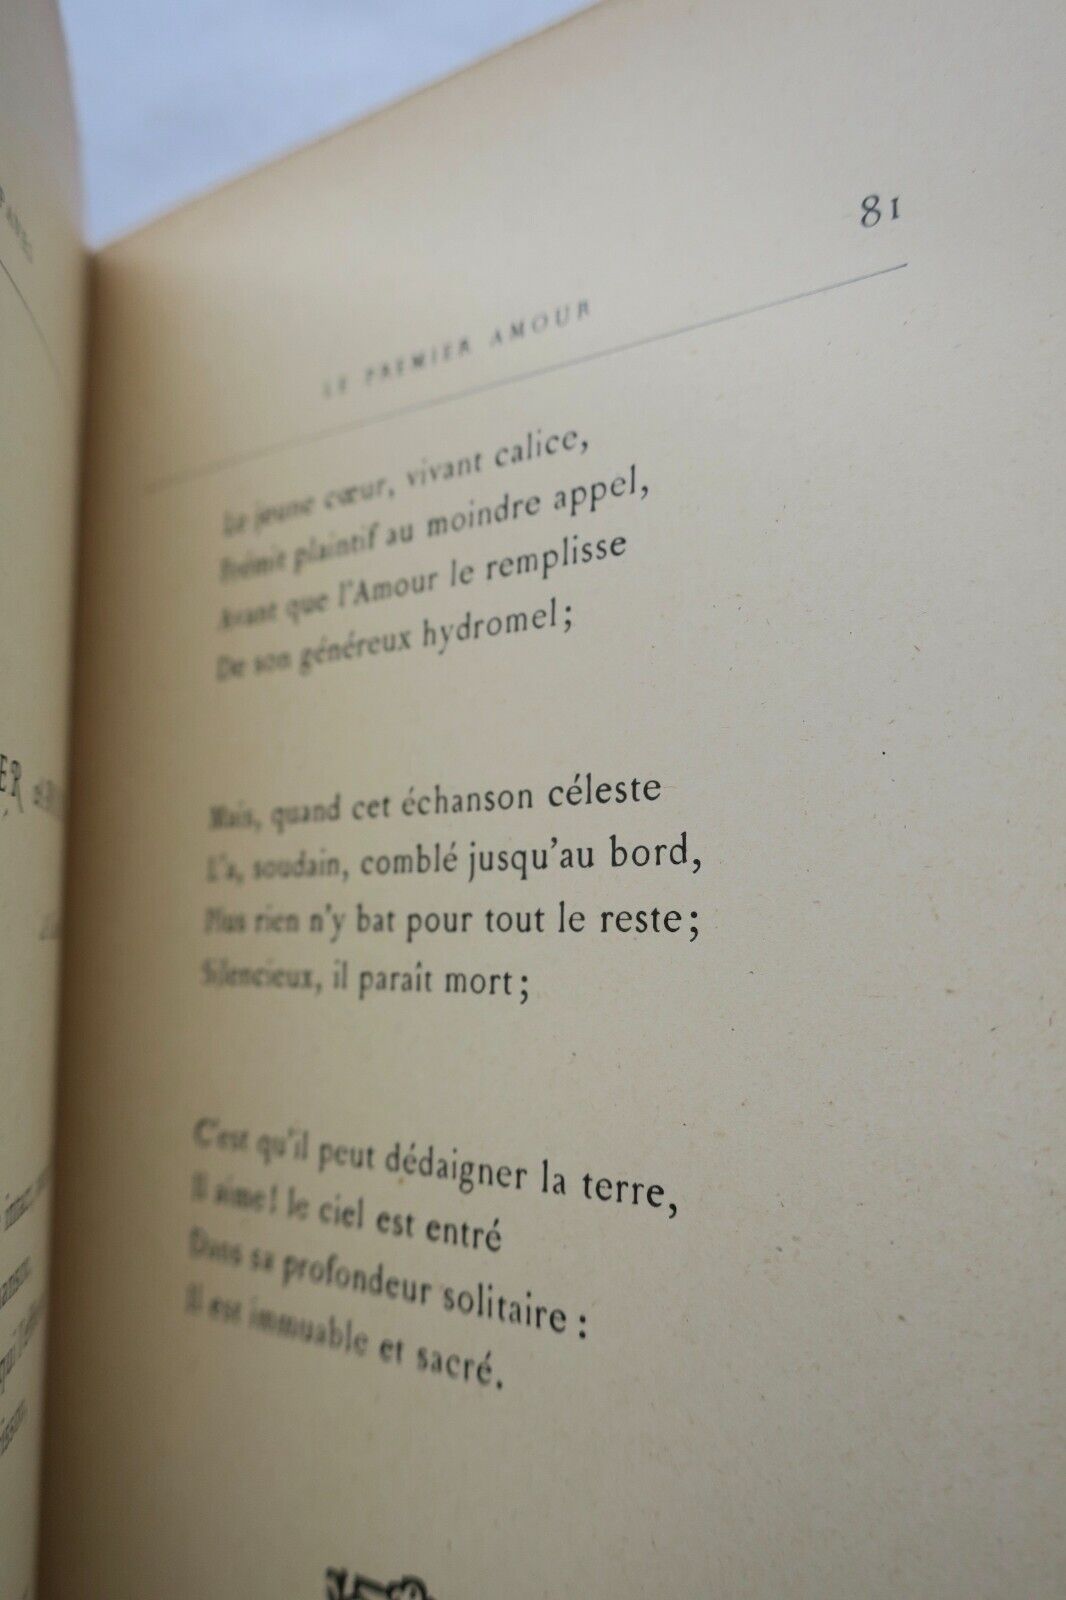 81
LE PREMIER AMOUR
Le jeune cœur, vivant calice,
Frémit plaintif au moindre appel,
Avant que l'Amour le remplisse
De son généreux hydromel;
Mais, quand cet échanson céleste
L'a, soudain, comblé jusqu'au bord,
Plus rien n'y bat pour tout le reste;
Silencieux, il paraît mort;
C'est qu'il peut dédaigner la terre,
Il aime! le ciel est entré
Dans sa profondeur solitaire:
Il est immuable et sacré.